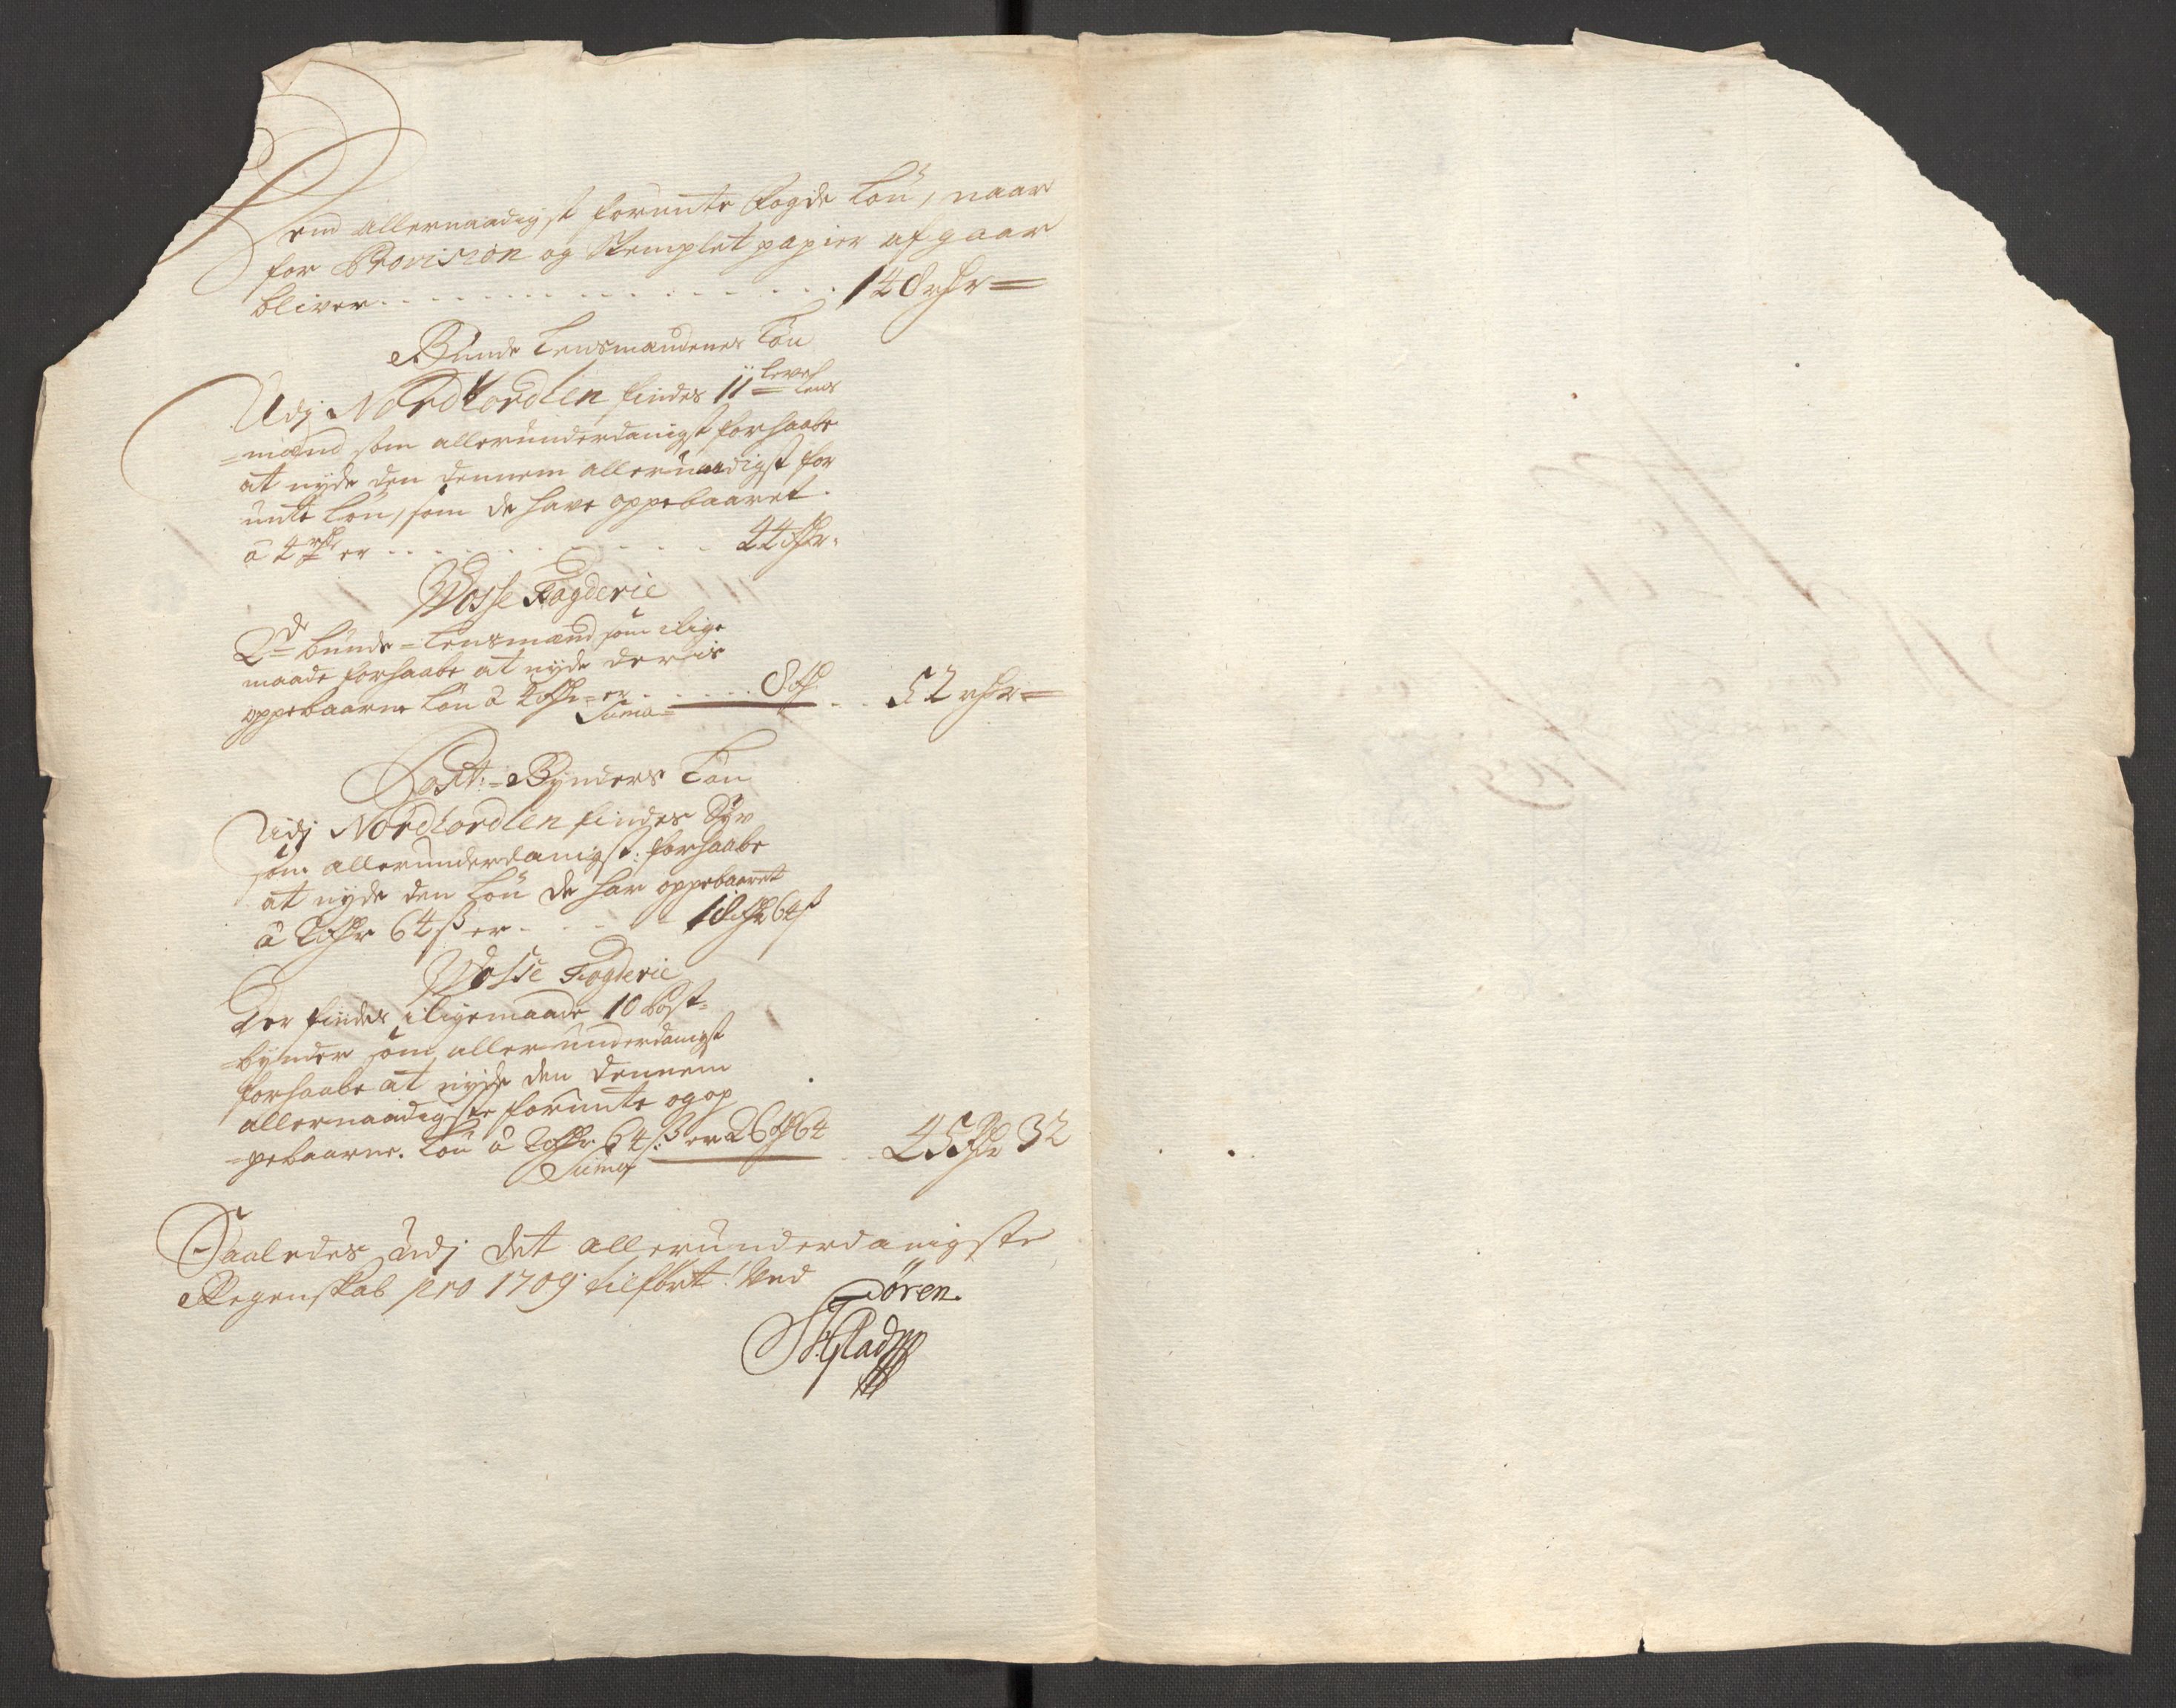 Den allernaadigst forunte Fogde Løn, naar
for Provision og Stemplet papier afgaar
bliver . . . . . . . . 148 rdr =
Bunde Lensmændenes Løn
Udj Nordhordlen findes 11 leve Lens
=mænd som allerunderdanigst forhaabe
at nyde den dennem allernaadigst for
unte Løn, som de have oppebaaret
a 4 rdr er . . . . . . 44 rdr.
Wosse Fogderie
2de bunde=Lensmænd som i lige
maade forhaabe at nyde deris
oppebaarne Løn a 4 rdr er . . . . 8 rd
Suma= . . 52 rdr =
Post=Bynders Løn
Udj Nordhordlen findes Syv
som allerunderdanigst: forhaabe
at nyde den Løn de har oppebaaret
a 2 rdr 64 s er . . . 18 rdr 64 s
Wosse Fogderie
Der findes i ligemaade 10 Post=
=bynder som allerunderdanigst
forhaabe at nyde den dennem
allernaadigste forunte og op
=pebaarne Løn a 2 rdr 64 s: er 26 rd 64
Suma . . 45 rdr 32
Saaledes udj det allerunderdanigste
Regenskab pro 1709 tilført! Ved
Søren